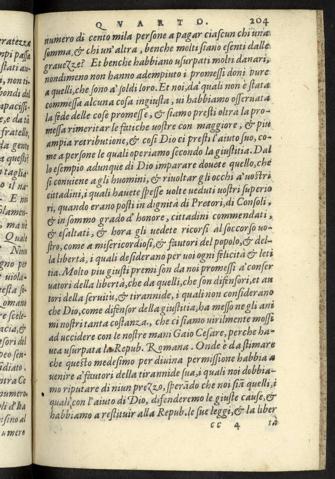 QVARTO. 204
numero di cento mila persone a pagar ciascun chi una
somma, & chi un'altra, benche molti siano esenti dalle
grauezze? Et benche habbiano usurpati molti danari,
nondimeno non hanno adempiuto i promessi doni pure
a quelli, che sono a' soldi loro. Et noi, da' quali non è stata
commessa alcuna cosa ingiusta, ui habbiamo osseruata
la fede delle cose promesse, & siamo presti oltra la pro-
messa rimeritar le fatiche uostre con maggiore, & piu
ampia retributione, & cosi Dio ci presti l'aiuto suo, co-
me a persone le quali operiamo secondo la giustitia. Dal
lo essempio adunque di Dio imparare douete quello, che
si conuiene a gli huomini, & riuoltar gli occhi a' uostri
cittadini, i quali hauete spesse uolte ueduti uostri superio
ri, quando erano posti in dignità di Pretori, di Consoli,
& in sommo grado d'honore, cittadini commendati,
& esaltati, & hora gli uedete ricorsi al soccorso uo-
stro, come a misericordiosi, & fautori del popolo, & del-
la libertà, i quali desiderano per uoi ogni felicità & leti
tia. Molto piu giusti premi son da noi promessi a' conser
uatori della libertà, che da quelli, che son difensori, et au
tori della seruitù, & tirannide, i quali non considerano
che Dio, come difensor della giustitia, ha messo ne gli ani
mi nostri tanta costanza, che ci siamo uirilmente mossi
ad uccidere con le nostre mani Gaio Cesare, perche ha-
uea usurpata la Repub. Romana. Onde è da stimare
che questo medesimo per diuina permissione habbia a
uenire a' fautori della tirannide sua, i quali noi dobbia-
mo riputare di niun prezzo, sperãdo che noi siã quelli, i
quali, con l'aiuto di Dio, difenderemo le giuste cause, &
habbiamo a restituir alla Repub. le sue leggi, & la liber
cc 4 tà